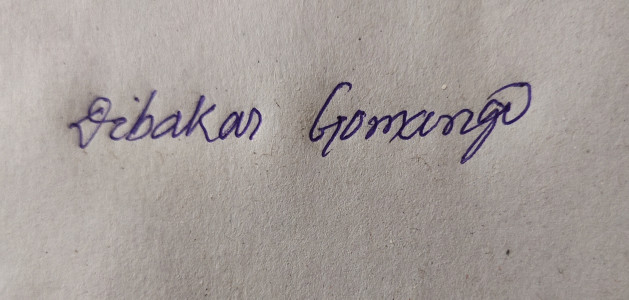 Dibakar Gomango